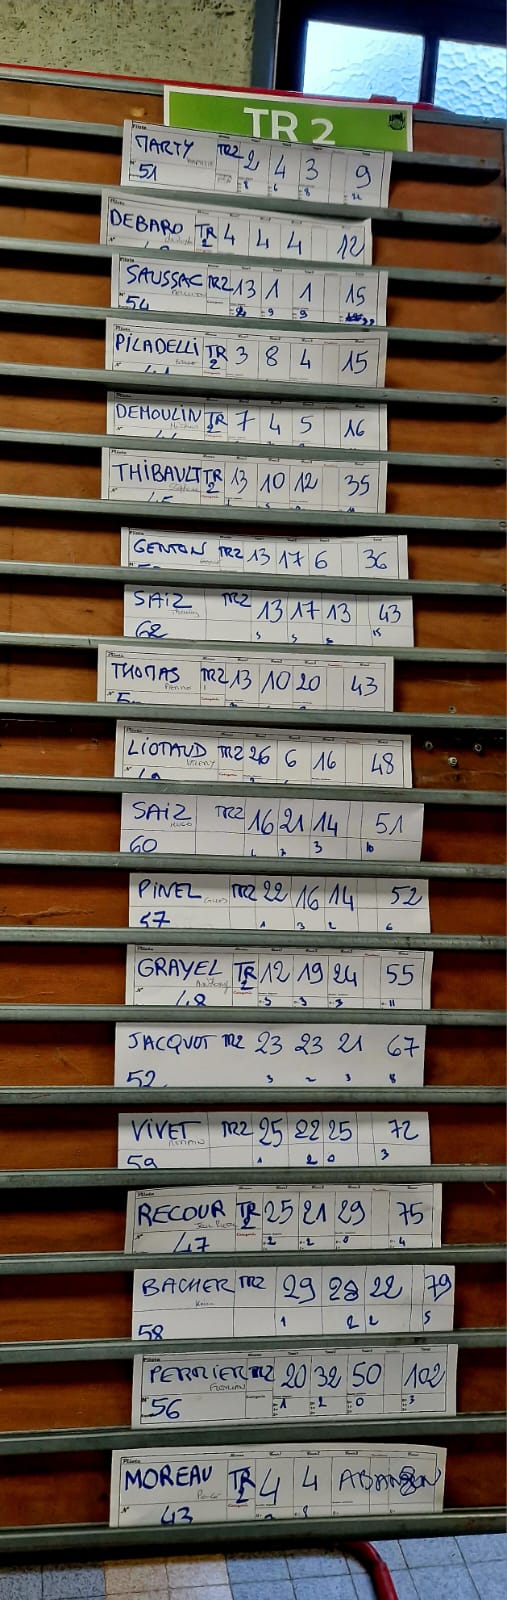 TR 2
MARTY TR2 2 4 3 9
51 8 6 8
DEBARD TR 2 4 4 4 12
SAUSSAC TR2 13 1 1 15
54 9 9
PILADELLI TR 2 3 8 4 15
DEMOULIN TR 2 7 4 5 16
THIBAULT TR 2 13 10 12 35
GENTON TR2 13 17 6 36
SAIZ TR2 13 17 13 43
62
THOMAS Pierre TR2 13 10 20 43
LIOTAUD TR2 26 6 16 48
SAIZ HUGO TR2 16 21 14 51
60 3 10
PINEL TR2 22 16 14 52
57 1 3 2 6
GRAYEL Antony TR 2 12 19 24 55
48 5 3 3 11
JACQUOT TR2 23 23 21 67
52 3 2 3 8
VIVET ROMAIN TR2 25 22 25 72
59 1 2 0 3
RECOUR TR 2 25 21 29 75
47 2 2 0 4
BACHER Kevin TR2 29 28 22 79
58 1 2 2 5
PERRIER FLORIAN TR2 20 32 50 102
N° 56 1 2 0 3
MOREAU TR 2 4 4 ABANDON
N° 43